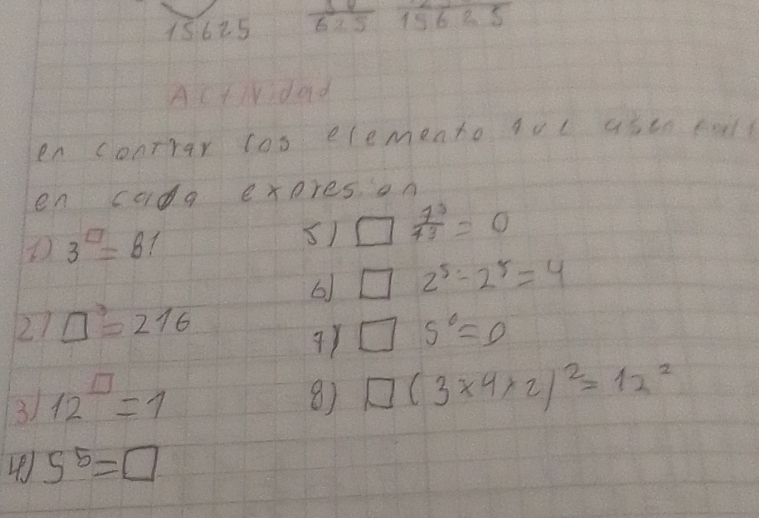 15625   625   15625
Actividad
en contrar los elemento que asen
en cada expresion
1) 3^□ = 81
2) □³ = 216
3) 12^□ = 1
4) 5⁵ = □
5) □ = 0
6) □ 2⁵ - 2⁵ = 4
7) □ 5⁰ = 0
8) □ (3 x 4 x 2)² = 12²